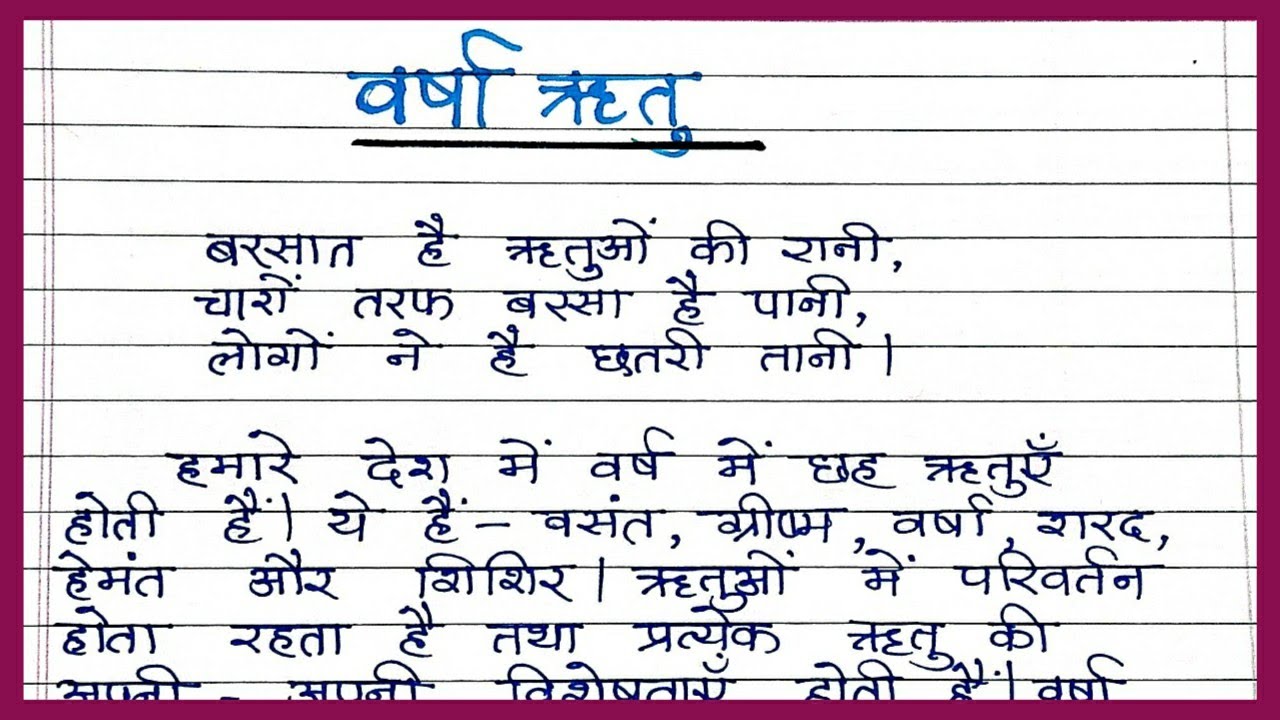 वर्षा ऋतु
बरसात है ऋतुओं की रानी,
चारों तरफ बरसा है पानी,
लोगों ने है छतरी तानी।
हमारे देश में वर्ष में छह ऋतुएँ
होती हैं। ये हैं – वसंत, ग्रीष्म, वर्षा, शरद,
हेमंत और शिशिर। ऋतुओं में परिवर्तन
होता रहता है तथा प्रत्येक ऋतु की
अपनी - अपनी विशेषताएँ होती हैं। वर्षा